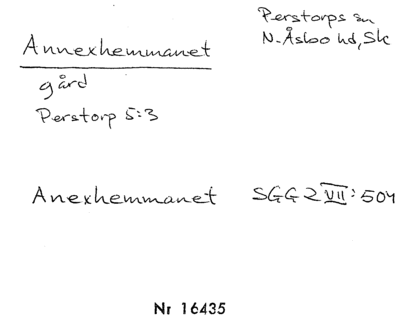 Perstorps sn
N. Åsbo hd, Sk
Annexhemmanet
gård
Perstorp 5:3
Anexhemmanet SGG 2 VII : 504
Nr 16435